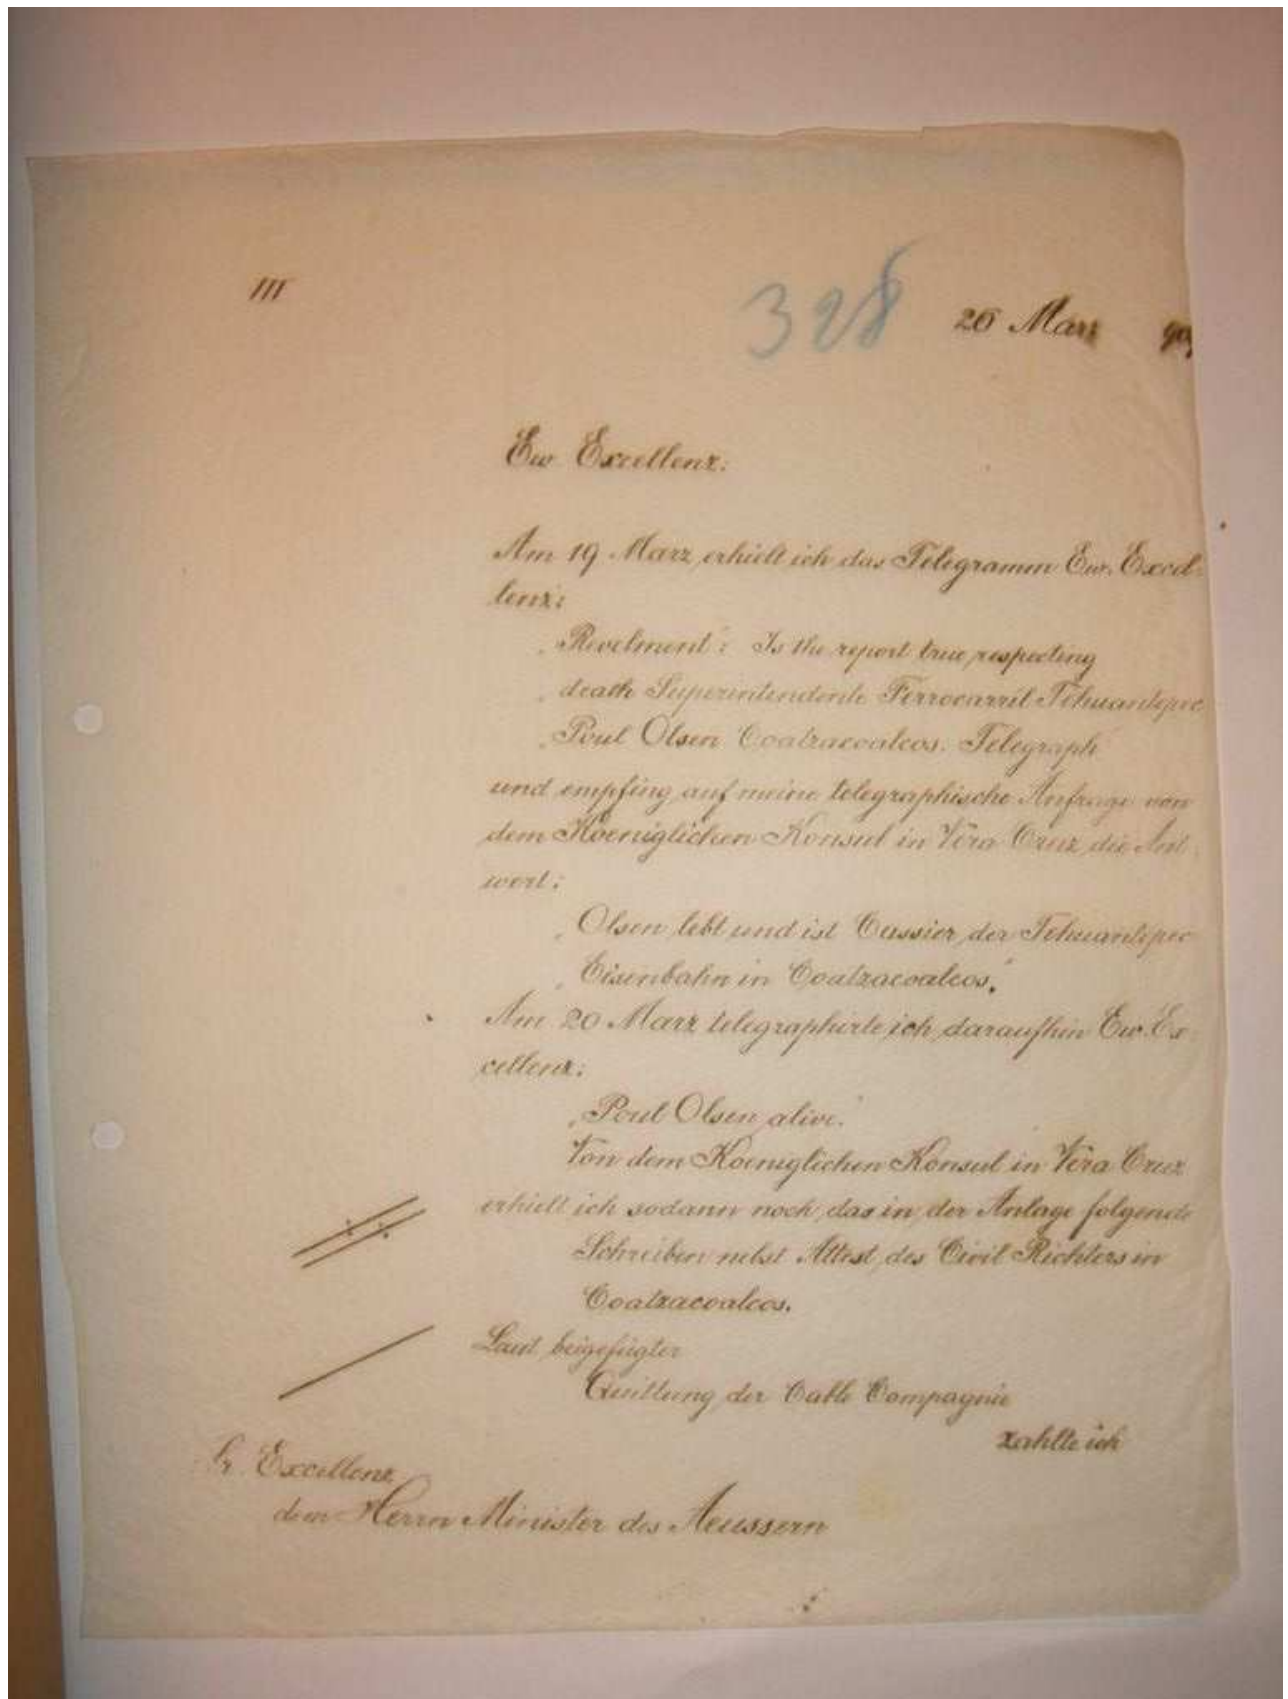 III
328
26 März
Ew. Excellenz:
Am 19 März erhielt ich das Telegramm Ew. Excel-
lenz:
„Revelment": Is the report true respecting
„death Superintendente Ferrocarril Tehuantepec
„Poul Olsen Coatzacoalcos. Telegraph
und empfing auf meine telegraphische Anfrage von
dem Koeniglichen Konsul in Vera Cruz die Ant-
wort:
„Olsen lebt und ist Cassier der Tehuantepec
„Eisenbahn in Coatzacoalcos."
Am 20 März telegraphirte ich daraufhin Ew. Ex-
cellenz:
„Poul Olsen alive."
Von dem Koeniglichen Konsul in Vera Cruz
erhielt ich sodann noch das in der Anlage folgende
Schreiben nebst Attest des Civil Richters in
Coatzacoalcos.
Laut beigefügter
Quittung der Cable Compagnie
zahlte ich
Sr. Excellenz
dem Herrn Minister des Aeussern